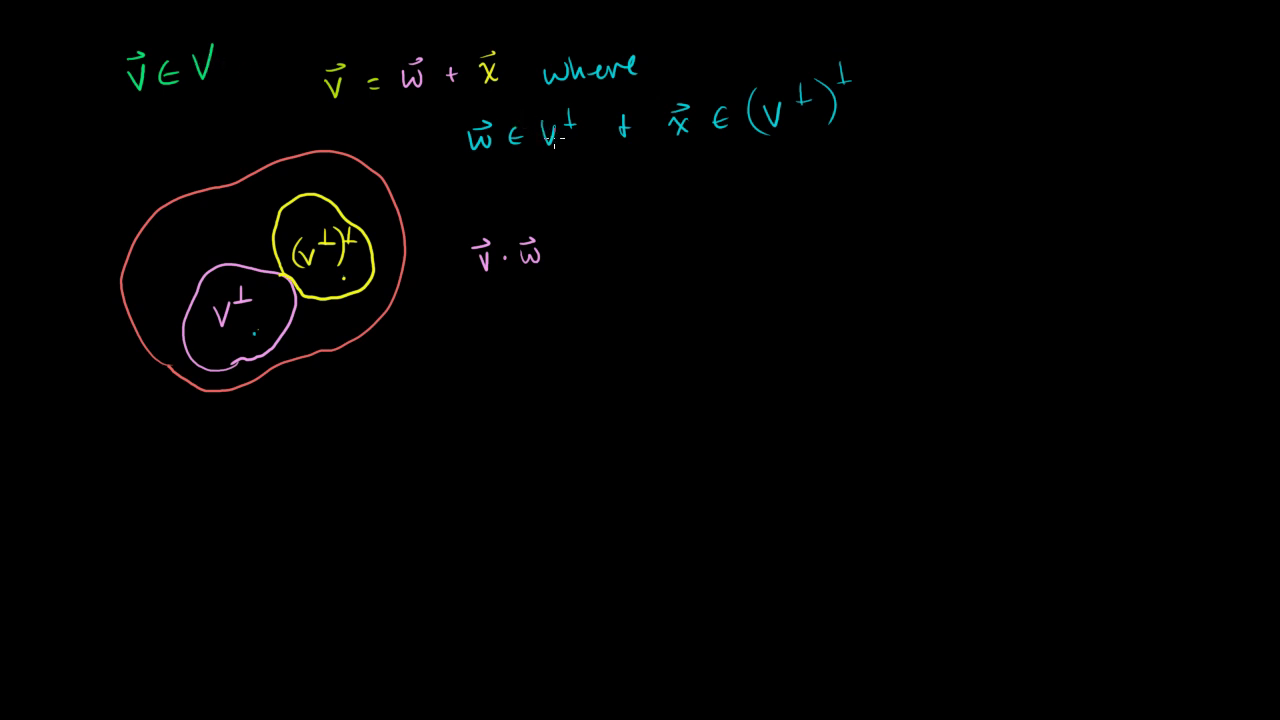 v⃗ ∈ V
v⃗ = w⃗ + x⃗ where
w⃗ ∈ V⊥ + x⃗ ∈ (V⊥)⊥
(V⊥)⊥
v⃗ · w⃗
V⊥